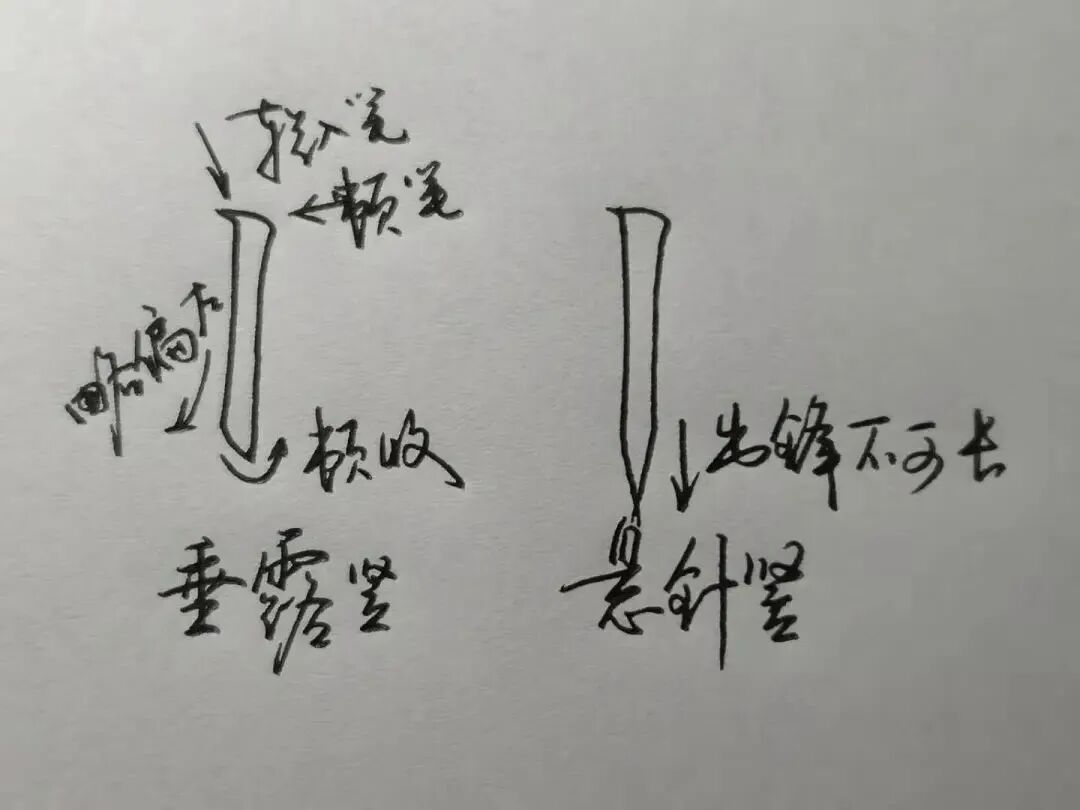 轻入笔
顿笔
略偏左
顿收
垂露竖
出锋不可长
悬针竖